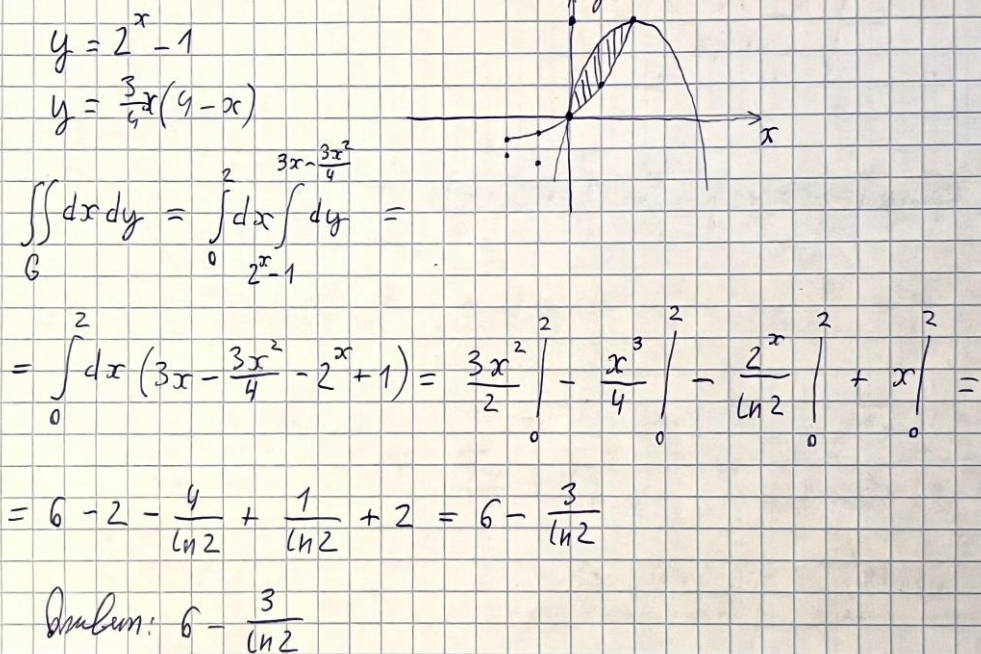 y
y = 2^x - 1
y = 3/4 x(4 - x)
x
∬_G dx dy = ∫_0^2 dx ∫_{2^x - 1}^{3x - 3x^2/4} dy =
= ∫_0^2 dx (3x - 3x^2/4 - 2^x + 1) = 3x^2/2 |_0^2 - x^3/4 |_0^2 - 2^x/ln2 |_0^2 + x |_0^2 =
= 6 - 2 - 4/ln2 + 1/ln2 + 2 = 6 - 3/ln2
Ответ: 6 - 3/ln2